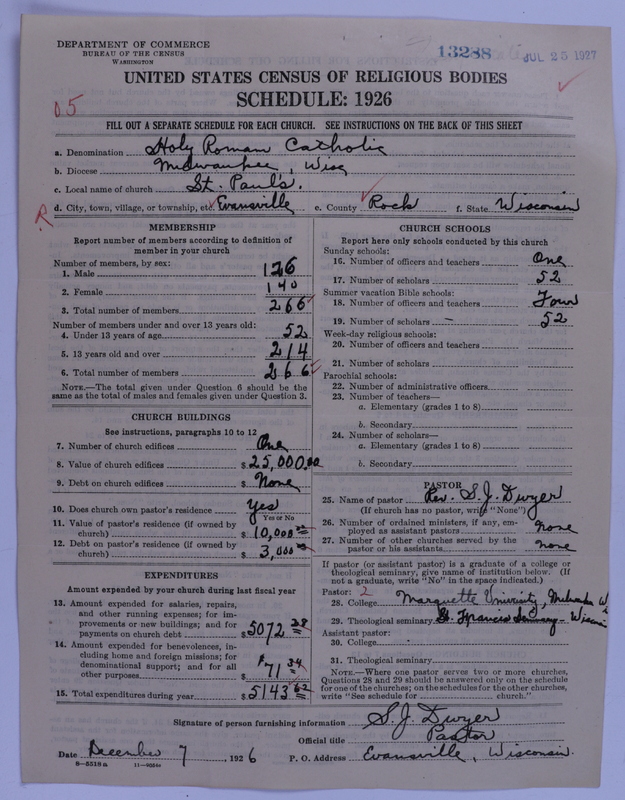 DEPARTMENT OF COMMERCE
BUREAU OF THE CENSUS
WASHINGTON
13288 JUL 25 1927
UNITED STATES CENSUS OF RELIGIOUS BODIES
SCHEDULE: 1926
D5
FILL OUT A SEPARATE SCHEDULE FOR EACH CHURCH. SEE INSTRUCTIONS ON THE BACK OF THIS SHEET
a. Denomination Holy Roman Catholic
b. Diocese Milwaukee, Wisc
c. Local name of church St. Paul's.
R d. City, town, village, or township, etc. Evansville e. County Rock f. State Wisconsin
MEMBERSHIP
Report number of members according to definition of
member in your church
Number of members, by sex:
1. Male 126
2. Female 140
3. Total number of members 266
Number of members under and over 13 years old:
4. Under 13 years of age 52
5. 13 years old and over 214
6. Total number of members 266
NOTE.—The total given under Question 6 should be the
same as the total of males and females given under Question 3.
CHURCH BUILDINGS
See instructions, paragraphs 10 to 12
7. Number of church edifices One
8. Value of church edifices $ 25,000.00
9. Debt on church edifices $ None
10. Does church own pastor's residence Yes
Yes or No
11. Value of pastor's residence (if owned by
church) $ 10,000 00
12. Debt on pastor's residence (if owned by
church) $ 3,000 00
EXPENDITURES
Amount expended by your church during last fiscal year
13. Amount expended for salaries, repairs,
and other running expenses; for im-
provements or new buildings; and for
payments on church debt $ 5072 28
14. Amount expended for benevolences, in-
cluding home and foreign missions; for
denominational support; and for all
other purposes $ 71 34
15. Total expenditures during year $ 5143 62
CHURCH SCHOOLS
Report here only schools conducted by this church
Sunday schools:
16. Number of officers and teachers One
17. Number of scholars 52
Summer vacation Bible schools:
18. Number of officers and teachers Four
19. Number of scholars 52
Week-day religious schools:
20. Number of officers and teachers
21. Number of scholars
Parochial schools:
22. Number of administrative officers
23. Number of teachers—
a. Elementary (grades 1 to 8)
b. Secondary
24. Number of scholars—
a. Elementary (grades 1 to 8)
b. Secondary
PASTOR
25. Name of pastor Rev. S. J. Dwyer
(If church has no pastor, write "None")
26. Number of ordained ministers, if any, em-
ployed as assistant pastors none
27. Number of other churches served by the
pastor or his assistants none
If pastor (or assistant pastor) is a graduate of a college or
theological seminary, give name of institution below. (If
not a graduate, write "No" in the space indicated.)
Pastor: 2
28. College Marquette University
29. Theological seminary St. Francis Seminary -
Assistant pastor:
30. College
31. Theological seminary
NOTE.—Where one pastor serves two or more churches,
Questions 28 and 29 should be answered only on the schedule
for one of the churches; on the schedules for the other churches,
write "See schedule for church."
Signature of person furnishing information S. J. Dwyer
Official title Pastor
Date December 7, 1926 P. O. Address Evansville, Wisconsin.
8-5518a 11-9554c